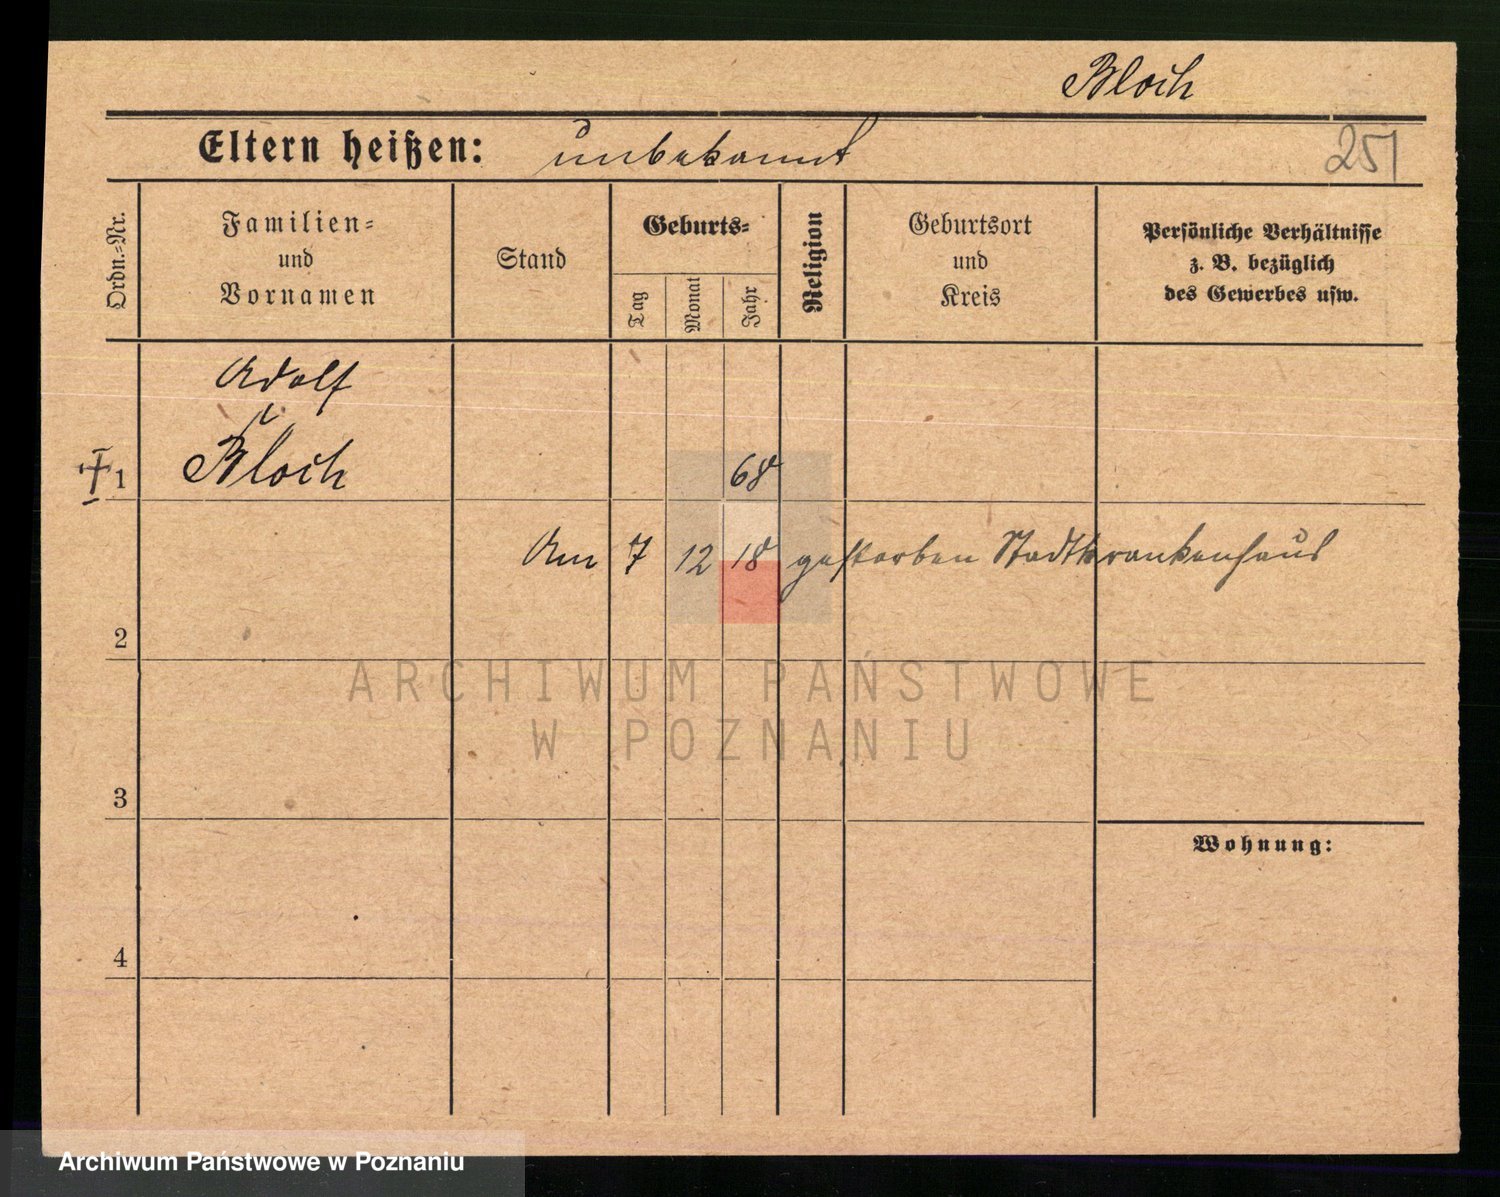 Bloch
Eltern heißen: unbekannt
251
Ordn.-Nr.
Familien-
und
Vornamen
Stand
Geburts-
Tag
Monat
Jahr
Religion
Geburtsort
und
Kreis
Persönliche Verhältnisse
z. B. bezüglich
des Gewerbes usw.
Adolf
Bloch
1
68
Am 7 12 18 gestorben Stadtkrankenhaus
2
ARCHIWUM PAŃSTWOWE
W POZNANIU
3
Wohnung:
4
Archiwum Państwowe w Poznaniu